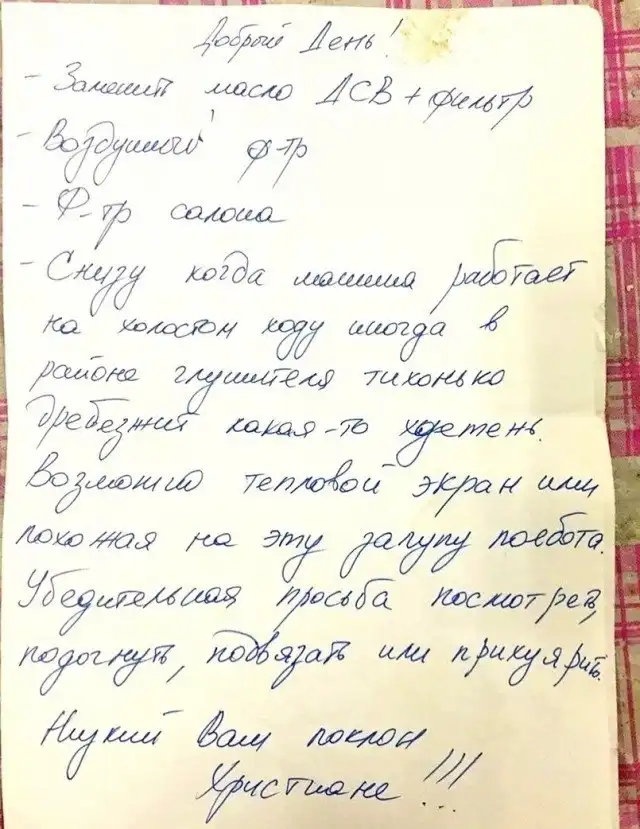 Добрый День!
- Заменить масло ДСВ + фильтр
- Воздушный ф-тр
- Ф-тр салона
- Снизу когда машина работает
на холостом ходу иногда в
районе глушителя тихонько
дребезжит какая-то хдетень.
Возможно тепловой экран или
похожая на эту залупу поебота.
Убедительная просьба посмотреть,
подогнуть, подвязать или прихуярить.
Низкий Вам поклон
Христиане!!!